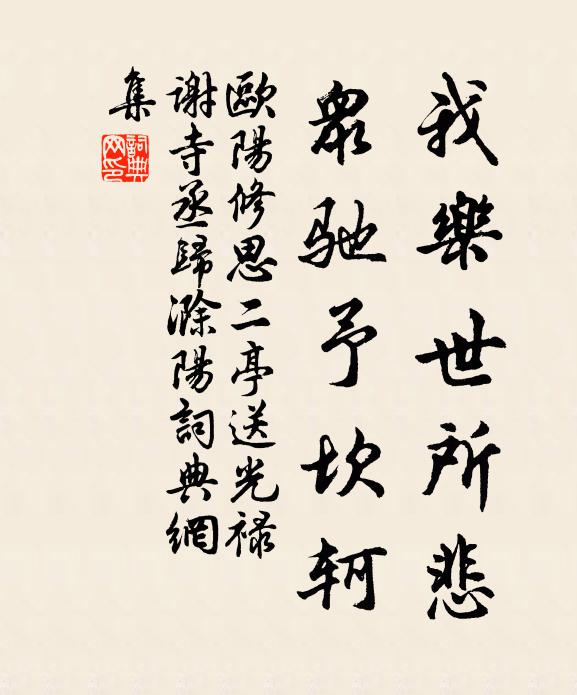 我樂世所悲
眾馳予坎軻
歐陽修思二亭送光禄
謝寺丞歸滁陽詞典網
集
詞典網印